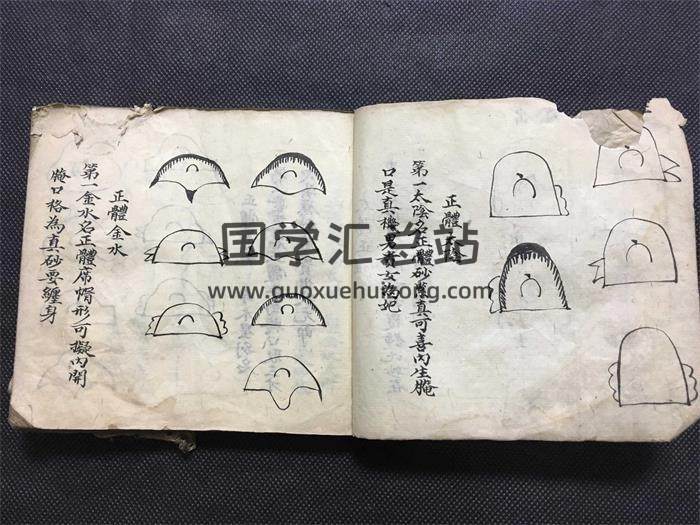 正體太陰
第一太陰名正體砂 真可喜內生腌
口是真機男 女為妃
正體金水
第一金水名正體席帽形可擬內開
腌口格為真砂要纏身
国学汇总站
www.guoxuehuizong.com